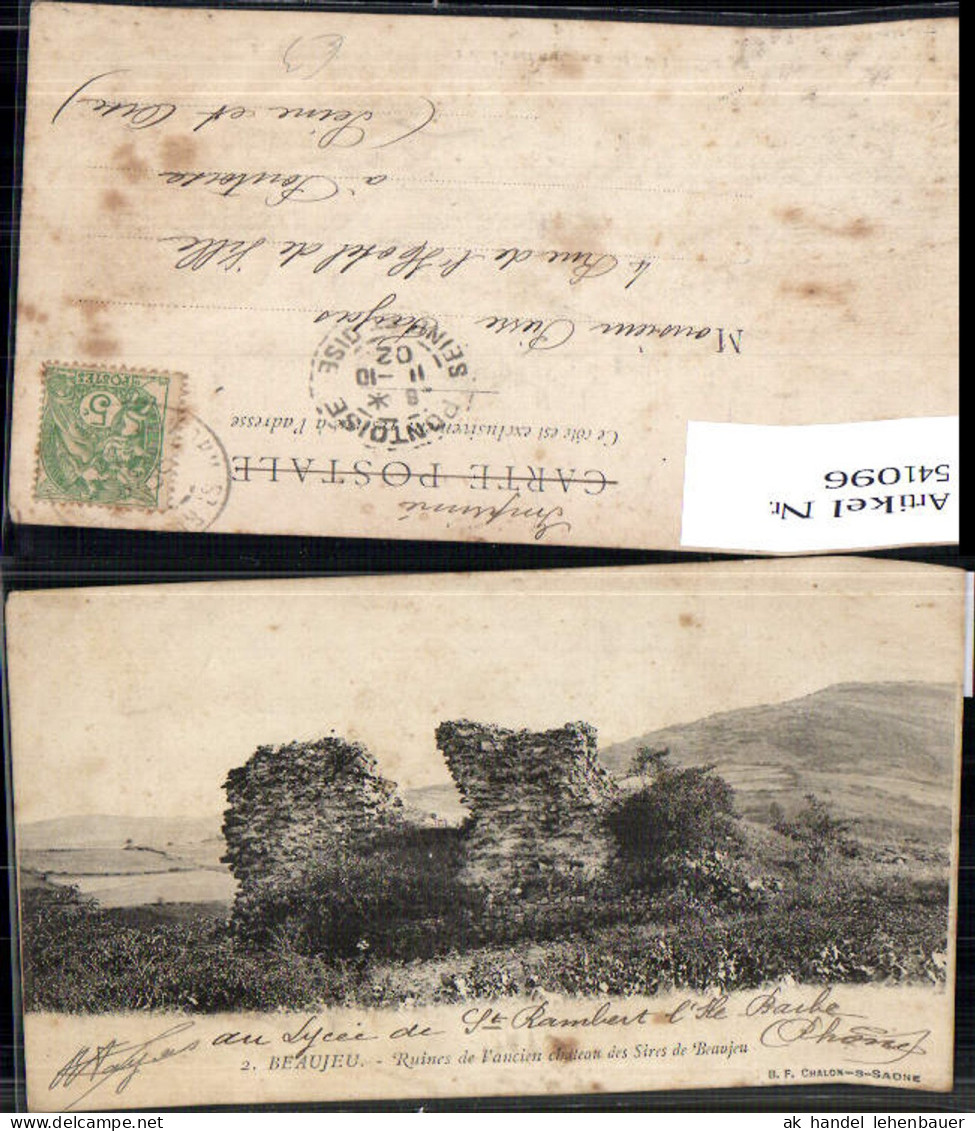 Imprimé
CARTE POSTALE
Ce côté est exclusivement à l'adresse
Monsieur
4 Rue de l'Hotel de Ville
à Pontoise
(Seine et Oise)
POSTES
5
PONTOISE
8
11 -10
02
SEINE OISE
Artikel Nr.
541096
au Lycée de St Rambert l'Ile Barbe
(Rhône)
2. BEAUJEU. - Ruines de l'ancien château des Sires de Beaujeu
B. F. CHALON-S-SAONE
ak handel lehenbauer